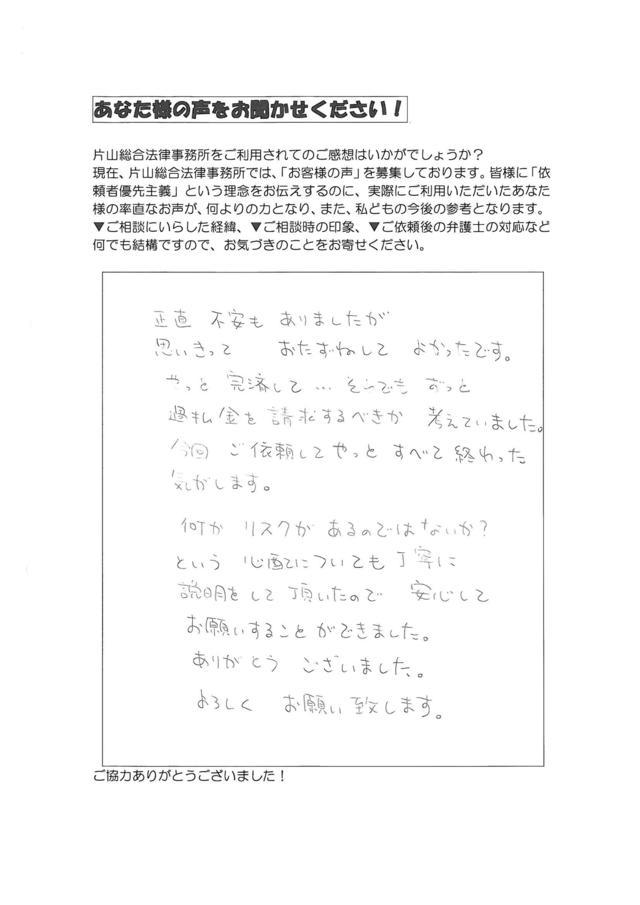 あなた様の声をお聞かせください!
片山総合法律事務所をご利用されてのご感想はいかがでしょうか?
現在、片山総合法律事務所では、「お客様の声」を募集しております。皆様に「依
頼者優先主義」という理念をお伝えするのに、実際にご利用いただいたあなた
様の率直なお声が、何よりの力となり、また、私どもの今後の参考となります。
▼ご相談にいらした経緯、▼ご相談時の印象、▼ご依頼後の弁護士の対応など
何でも結構ですので、お気づきのことをお寄せください。
正直 不安も ありましたが
思いきって おたずねして よかったです。
やっと 完済して… それでも ずっと
過払金を 請求するべきか 考えていました。
今回 ご依頼して やっと すべて 終わった
気がします。
何か リスクが あるのではないか?
という 心配についても 丁寧に
説明をして 頂いたので 安心して
お願いすることができました。
ありがとう ございました。
よろしく お願い致します。
ご協力ありがとうございました!